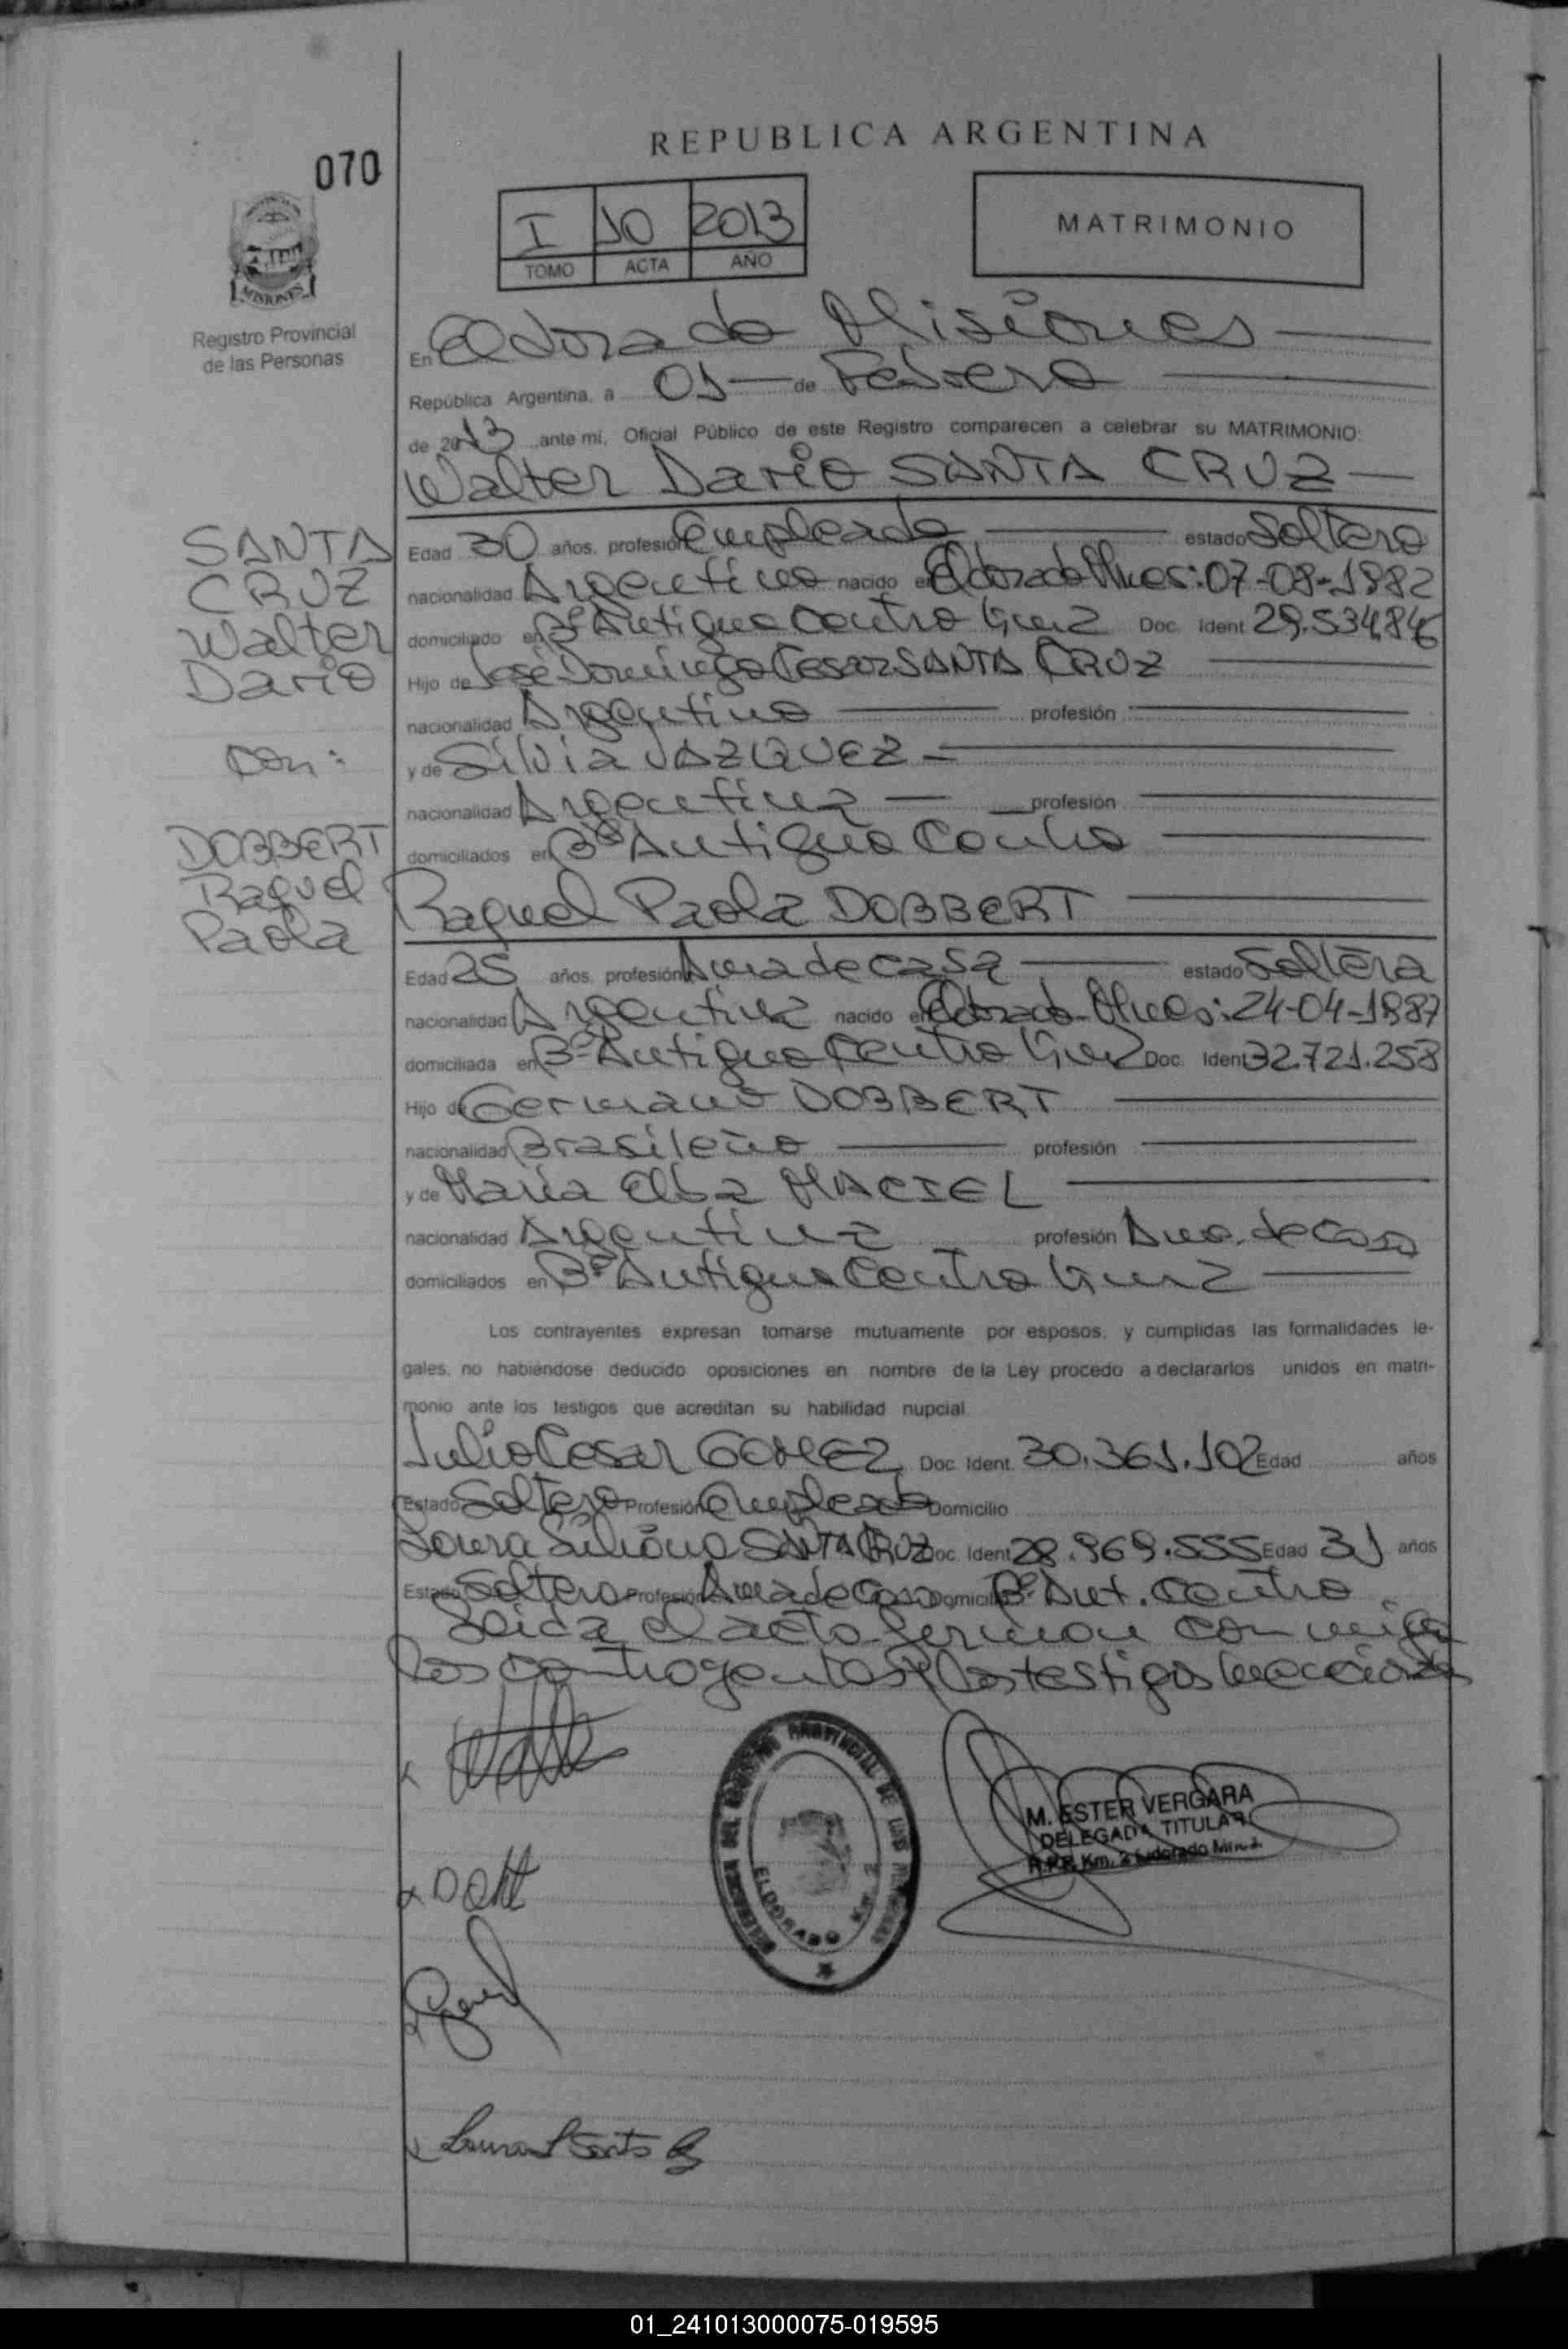 REPUBLICA ARGENTINA
070
I 10 2013
TOMO ACTA AÑO
MATRIMONIO
MISIONES
Registro Provincial
de las Personas
En Eldorado Misiones
República Argentina, a 01 de Febrero
de 2013 ante mi, Oficial Público de este Registro comparecen a celebrar su MATRIMONIO:
Walter Dario SANTA CRUZ
SANTA
CRUZ
Walter
Dario
con:
DOBBERT
Raquel
Paola
Edad 30 años, profesión Empleado estado Soltero
nacionalidad Argentino nacido en Eldorado Mnes: 07-08-1982
domiciliado en Bº Antiguo Centro Doc. Ident 29.534.846
Hijo de José Domingo Cesar SANTA CRUZ
nacionalidad Argentino profesión
y de Silvia VAZQUEZ
nacionalidad Argentina profesión
domiciliados en Bº Antiguo Centro
Raquel Paola DOBBERT
Edad 25 años, profesión Ama de casa estado Soltera
nacionalidad Argentina nacido en Eldorado Mnes: 24-04-1987
domiciliada en Bº Antiguo Centro Doc. Ident 32.721.258
Hijo de Germano DOBBERT
nacionalidad Brasileño profesión
y de María Elba MACIEL
nacionalidad Argentina profesión Ama de Casa
domiciliados en Bº Antiguo Centro
Los contrayentes expresan tomarse mutuamente por esposos, y cumplidas las formalidades le-
gales, no habiéndose deducido oposiciones en nombre de la Ley procedo a declararlos unidos en matri-
monio ante los testigos que acreditan su habilidad nupcial
Julio Cesar GOMEZ Doc. Ident. 30.361.102 Edad años
Estado Soltero Profesión Empleado Domicilio
Laura Silvana SANTA CRUZ Doc. Ident 28.969.555 Edad 31 años
Estado Soltera Profesión Ama de Casa Domicilio Bº Ant. Centro
Leida el acta firman conmigo
los contrayentes y los testigos mencionados
M. ESTER VERGARA
DELEGADA TITULAR
R.P.P. Km. 2 Eldorado Mnes
DELEGACION DEL REGISTRO PROVINCIAL DE LAS PERSONAS
ELDORADO Km 2
Laura Santa
01_241013000075-019595